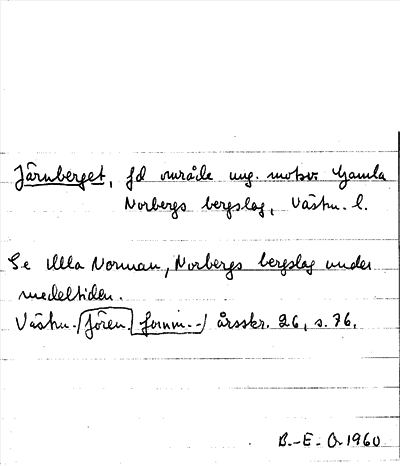 Järnberget, fd område ung. motsv. Gamla
Norbergs bergslag, Västm. l.
Se Ulla Norman, Norbergs bergslag under
medeltiden.
Västm. fören. fornm.- årsskr. 26, s. 76.
B.-E. O. 1960